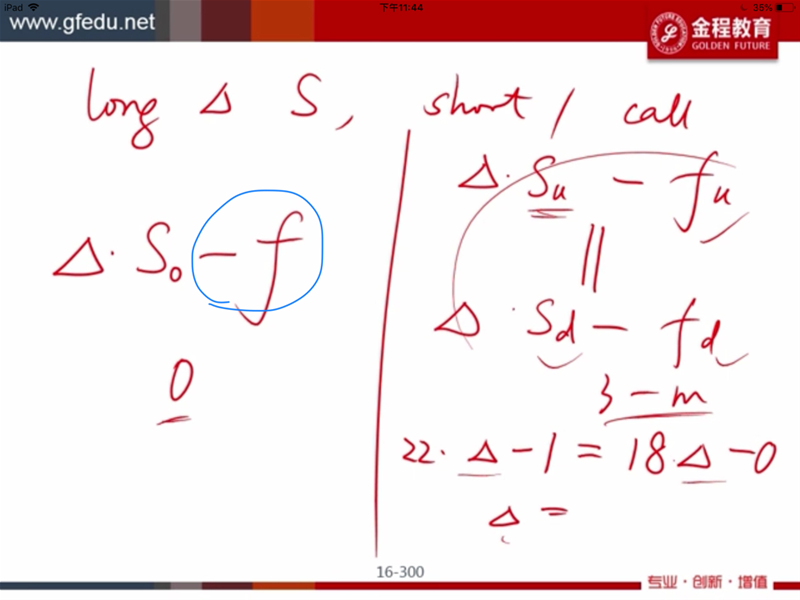 iPad 下午11:44 35%
www.gfedu.net
金程教育
GOLDEN FUTURE
long Δ S, short 1 call
Δ·Su - fu
Δ·S₀ - f
||
Δ·Sd - fd
0
3-m
22·Δ-1=18·Δ-0
Δ=
16-300
专业·创新·增值